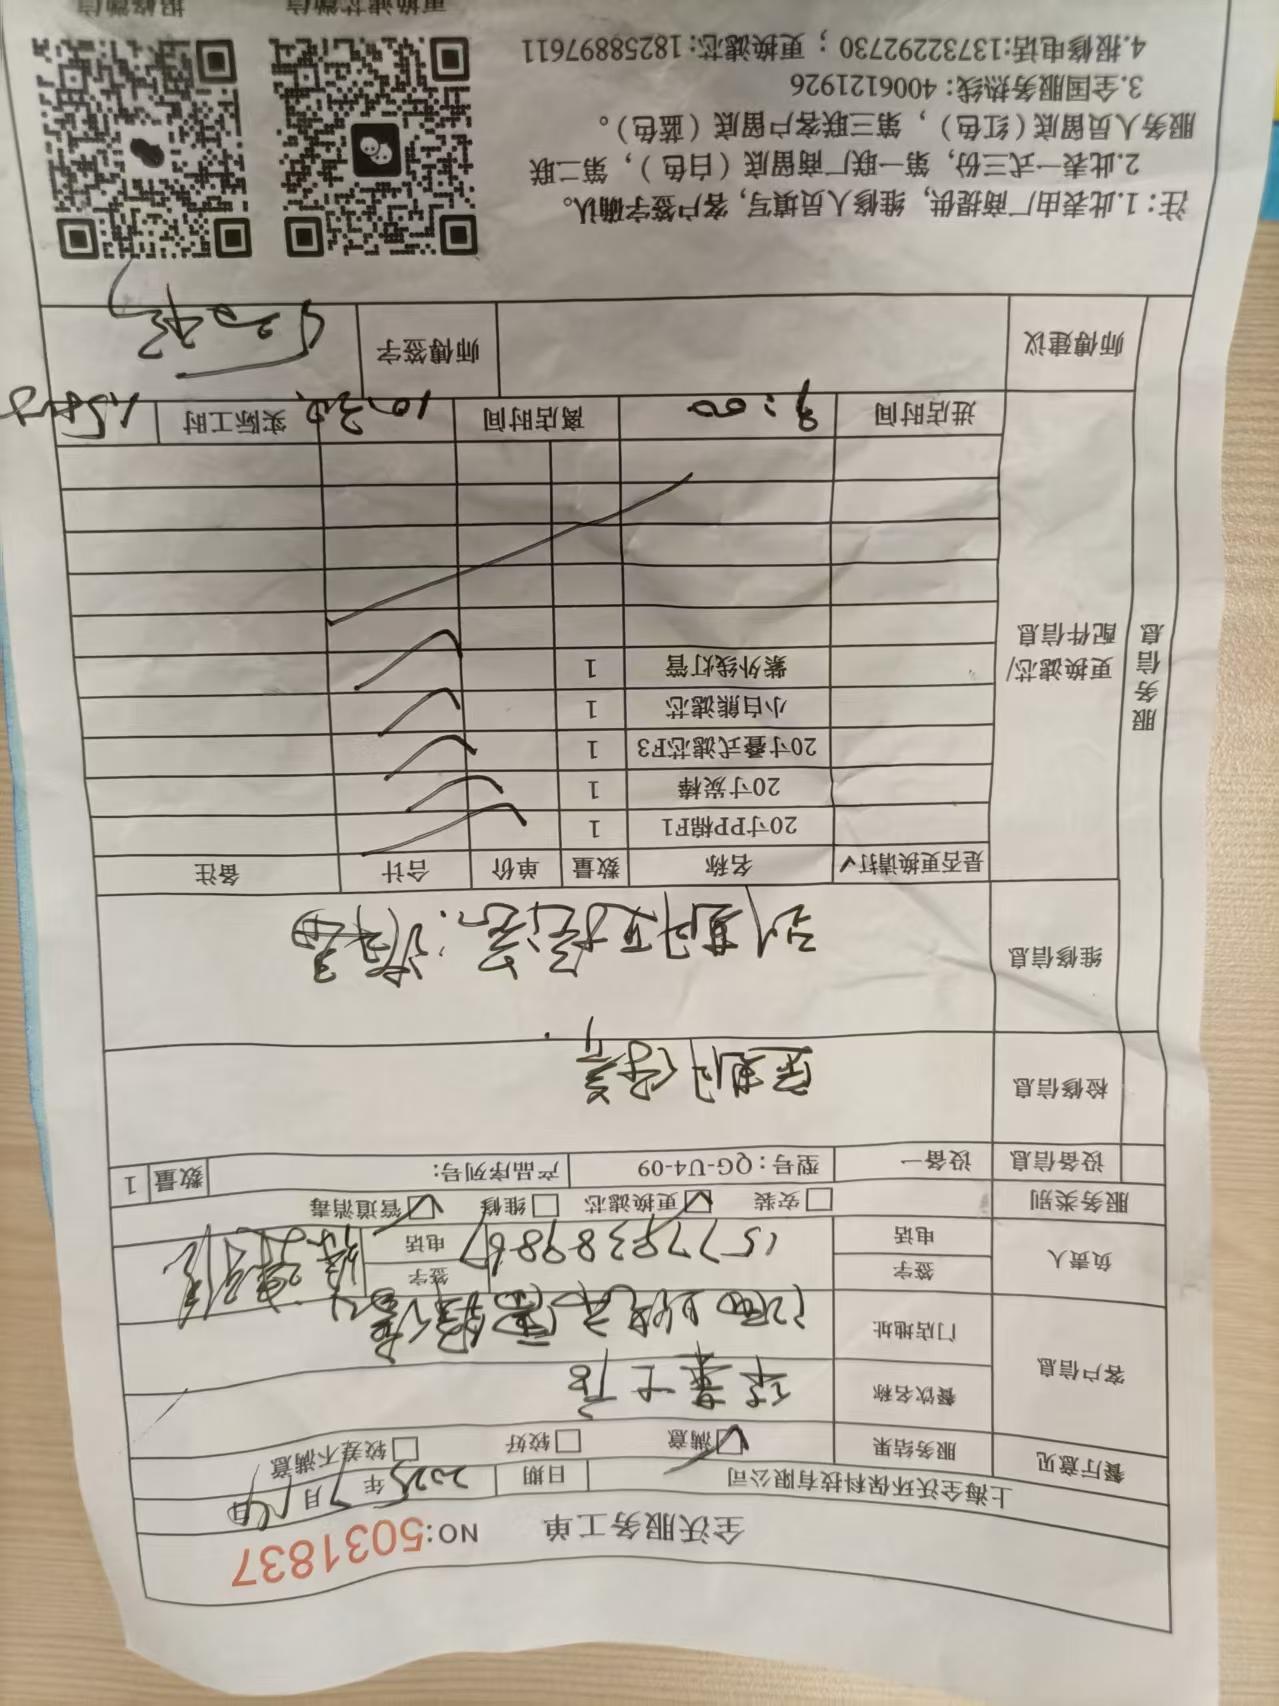 全沃服务工单 NO:5031837
上海全沃环保科技有限公司 日期 2025年7月14日
餐厅意见 服务结果 满意 较好 较差不满意
客户信息 餐饮名称 华莱士店
门店地址
负责人 签字 签字
电话 15778389867 电话
服务类别 安装 更换滤芯 维修 管道消毒
设备信息 设备一 型号：QG-U4-09 产品序列号： 数量 1
检修信息 定期保养
服务信息
维修信息 到期更换滤芯
更换滤芯/配件信息
是否更换请打√ 名称 数量 单价 合计 备注
20寸PP棉F1 1
20寸炭棒 1
20寸叠式滤芯F3 1
小白熊滤芯 1
紫外线灯管 1
进店时间 9:00 离店时间 10:30 实际工时 1.5小时
师傅建议 师傅签字
注：1.此表由厂商提供，维修人员填写，客户签字确认。
2.此表一式三份，第一联厂商留底（白色），第二联
服务人员留底（红色），第三联客户留底（蓝色）。
3.全国服务热线：4006121926
4.报修电话:13732292730；更换滤芯:18258897611
更换滤芯微信 报修微信